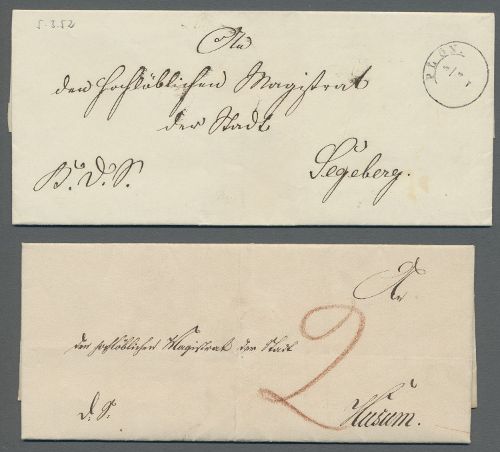 5.3.52
An
den hochlöblichen Magistrat
der Stadt
Segeberg.
D. S.
PLOEN
An
den hochlöblichen Magistrat der Stadt
2
Husum.
d. S.